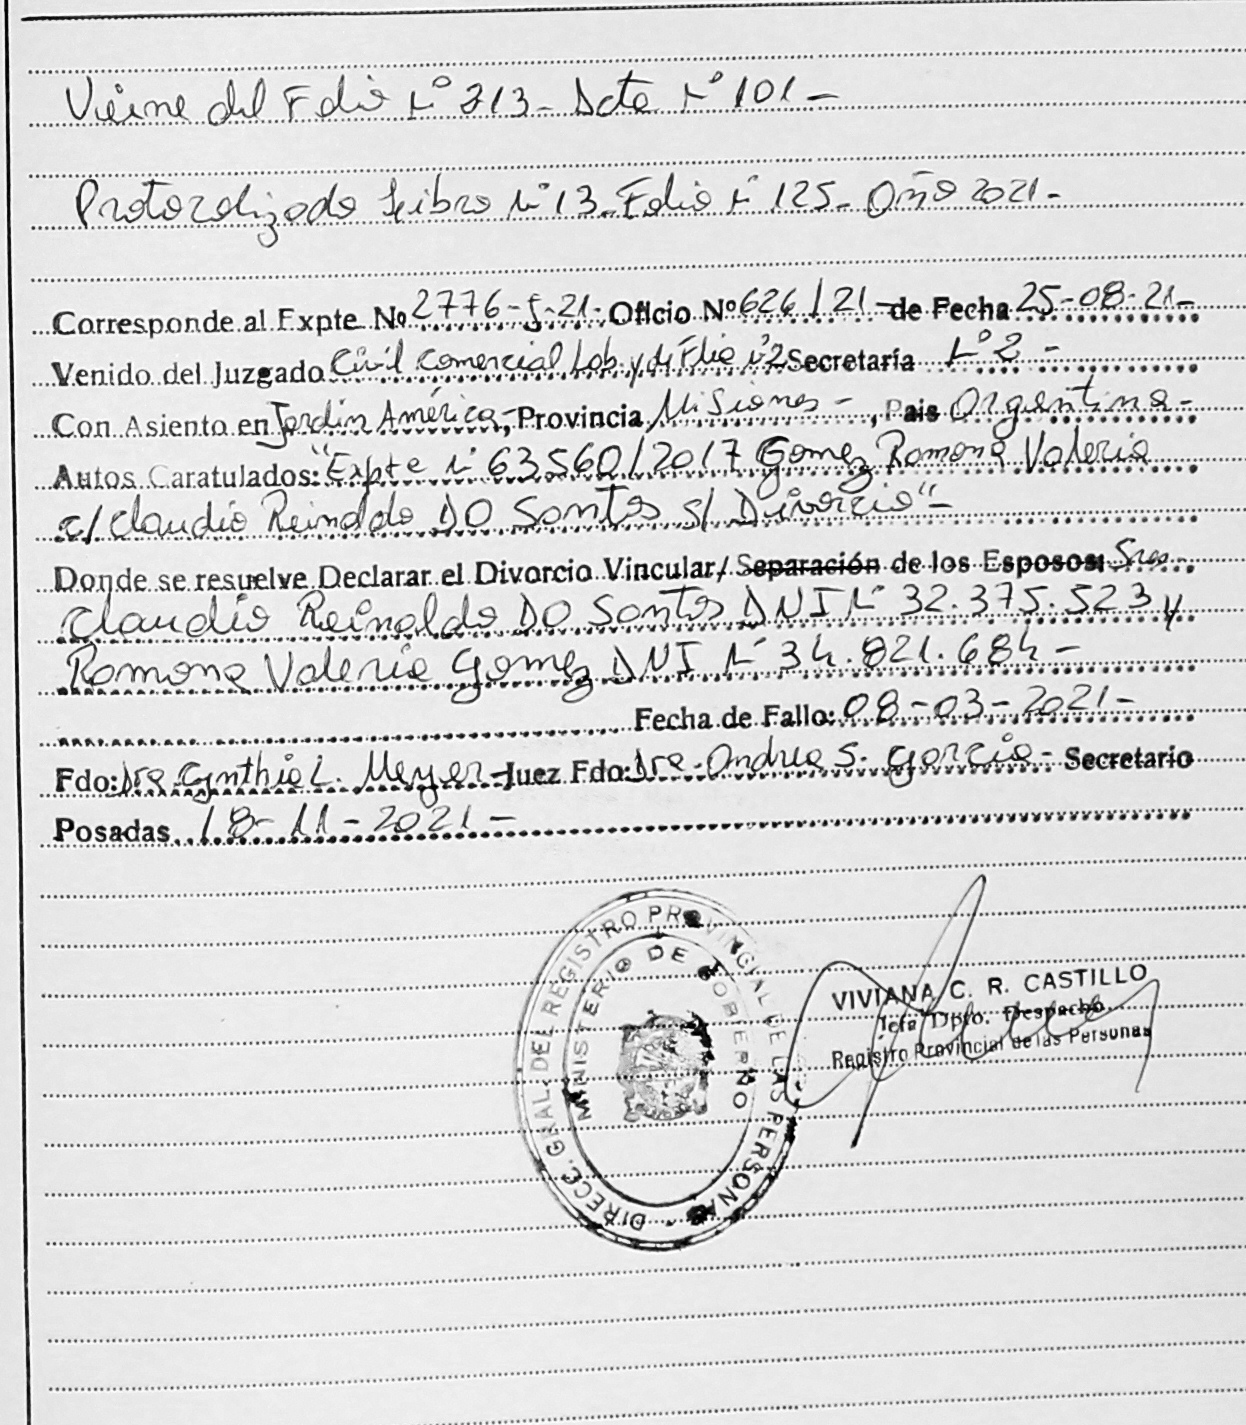 Viene del Folio N° 213- Acta N° 101-
Protocolizado Libro N° 13- Folio N° 125- Año 2021-
Corresponde al Expte Nº 2776-J-21- Oficio Nº 626/21- de Fecha 25-08-21-
Venido del Juzgado Civil Comercial Lab. y de Flia N°2 Secretaría N° 2 -
Con Asiento en Jardín América-, Provincia Misiones-, Pais Argentina-
Autos Caratulados: "Expte N° 63560/2017 Gomez Ramona Valeria
c/ Claudio Reinaldo DO Santos s/ Divorcio"-
Donde se resuelve Declarar el Divorcio Vincular/ Separación de los Esposos: Sres-
Claudio Reinaldo DO Santos DNI N° 32.375.523 y
Ramona Valeria Gomez DNI N° 34.821.684-
Fecha de Fallo: 08-03-2021-
Fdo: Dra Cynthia L. Meyer- Juez Fdo: Dra. Andrea S. Garcia- Secretario
Posadas 18-11-2021-
DIRECC. GRAL. DEL REGISTRO PROVINCIAL DE LAS PERSONAS
MINISTERIO DE GOBIERNO
VIVIANA C. R. CASTILLO
Jefa Dpto. Despacho
Registro Provincial de las Personas